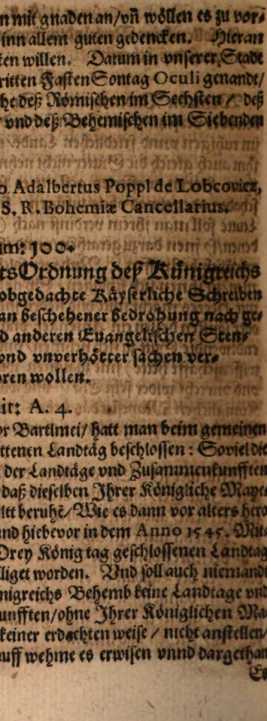 n mit gnaden an/vñ wöllen es zu vor-
inn allem guten gedencken. Hieran
ten willen. Datum in vnserer Stadt
ritten Fasten Sontag Oculi genandt/
he: deß Römischen im Sechsten / deß
vnd deß Behemischen im Siebenden
o Adalbertus Poppl de Lobcovicz,
S. R. Bohemiæ Cancellarius.
um: 100.
ts Ordnung deß Königreichs
obgedachte Käyserliche Schreiben
an beschehener bedrohung nach ge-
d anderen Euangelischen Sten-
ond vnverhötter sachen ver-
oren wollen.
it: A. 4.
or Bartlmei/ hatt man beim gemeinen
ttenen Landtag beschlossen: Soviel die
der Landtäge vnd Zusammenkunfften
daß dieselben Ihrer Königliche Mayt
llt beruhe/Wie es dann vor alters hero
nd hiebevor in dem Anno 1545. Mitt
Drey König tag geschlossenen Landtag
lliget worden. Vnd soll auch niemandt
nigreichs Behemb keine Landtage vnd
unfften/ohne Ihrer Königlichen Ma
keiner erdachten weise / nicht anstellen/
uff wehme es erwisen vnnd dargethan